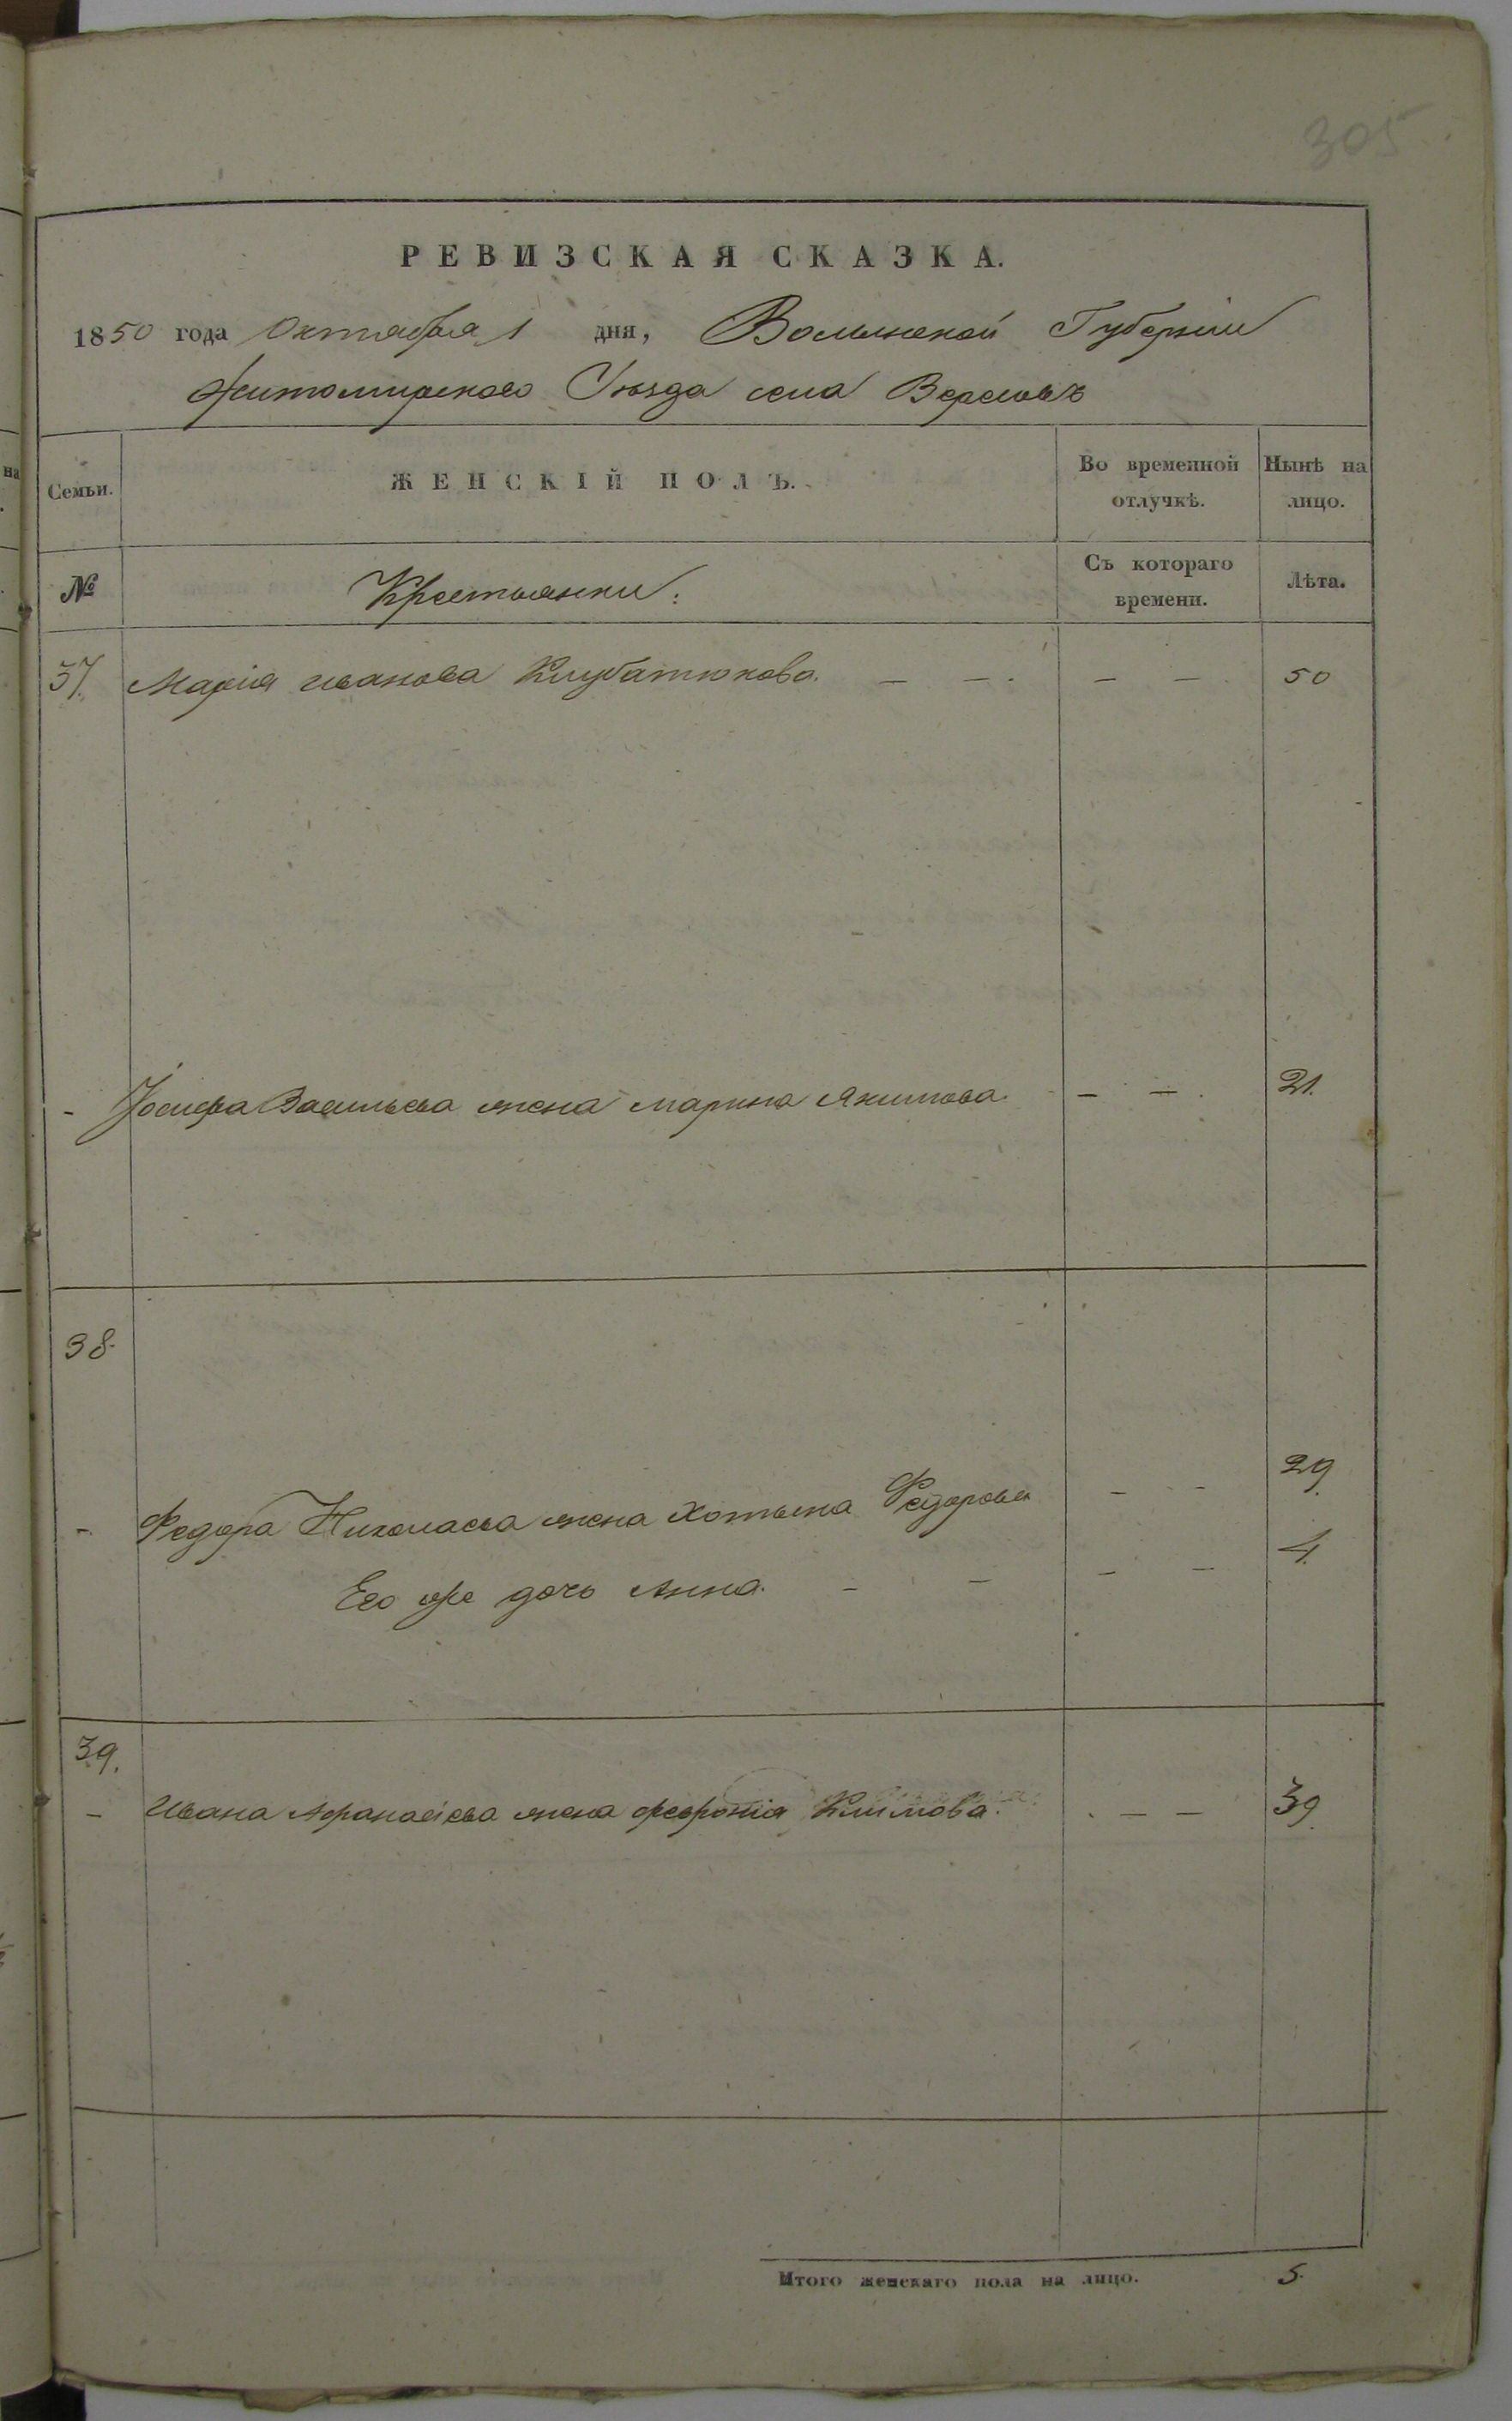 305
РЕВИЗСКАЯ СКАЗКА.
1850 года Октября 1 дня, Волынской Губерніи
Житомирского Уѣзда села Вересовъ
Семьи.
ЖЕНСКІЙ ПОЛЪ.
Во временной отлучкѣ.
Нынѣ на лицо.
№
Крестьянки.
Съ котораго времени.
Лѣта.
37. Марія Иванова Клубатюкова. — — . — — . 50
- Іосифа Васильева жена Марина Якимова. — — . 21.
38.
- Федора Николаева жена Хотына Федорова — - 29
Его же дочь Анна. — — — — 4.
39.
- Ивана Афанасіева жена Февронія Климова. — — 39
Итого женскаго пола на лицо. 5.